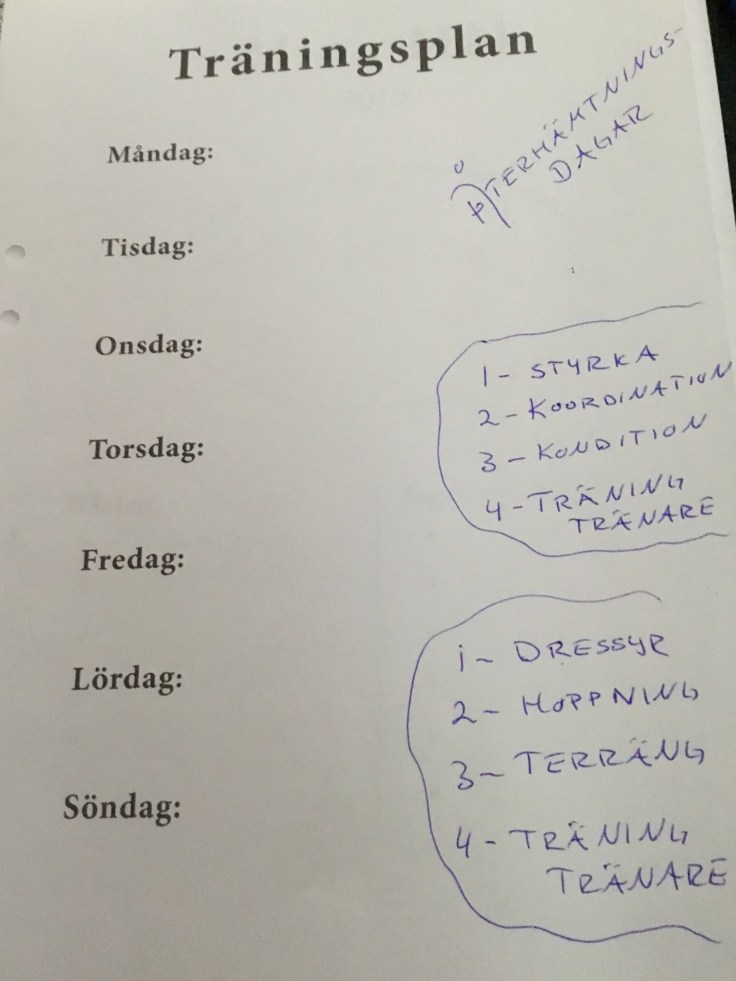 Träningsplan
Måndag:
ÅTERHÄMTNINGS-
DAGAR
Tisdag:
Onsdag:
Torsdag:
Fredag:
Lördag:
Söndag:
1- STYRKA
2- KOORDINATION
3- KONDITION
4- TRÄNING
TRÄNARE
1- DRESSYR
2- HOPPNING
3- TERRÄNG
4- TRÄNING
TRÄNARE